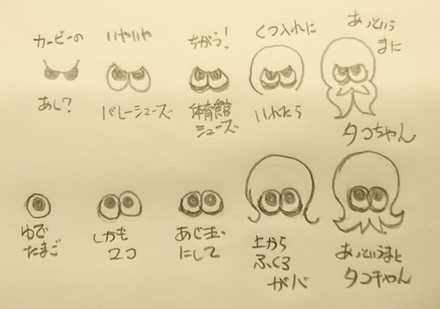 カービーの
あし?
いやいや
バレーシューズ
ちがう!
体育館
シューズ
くつ入れに
いれたら
あっという
まに
タコちゃん
ゆで
たまご
しかも
2コ
あじ玉
にして
上から
ふくろ
がバ
あっというまと
タコちゃん